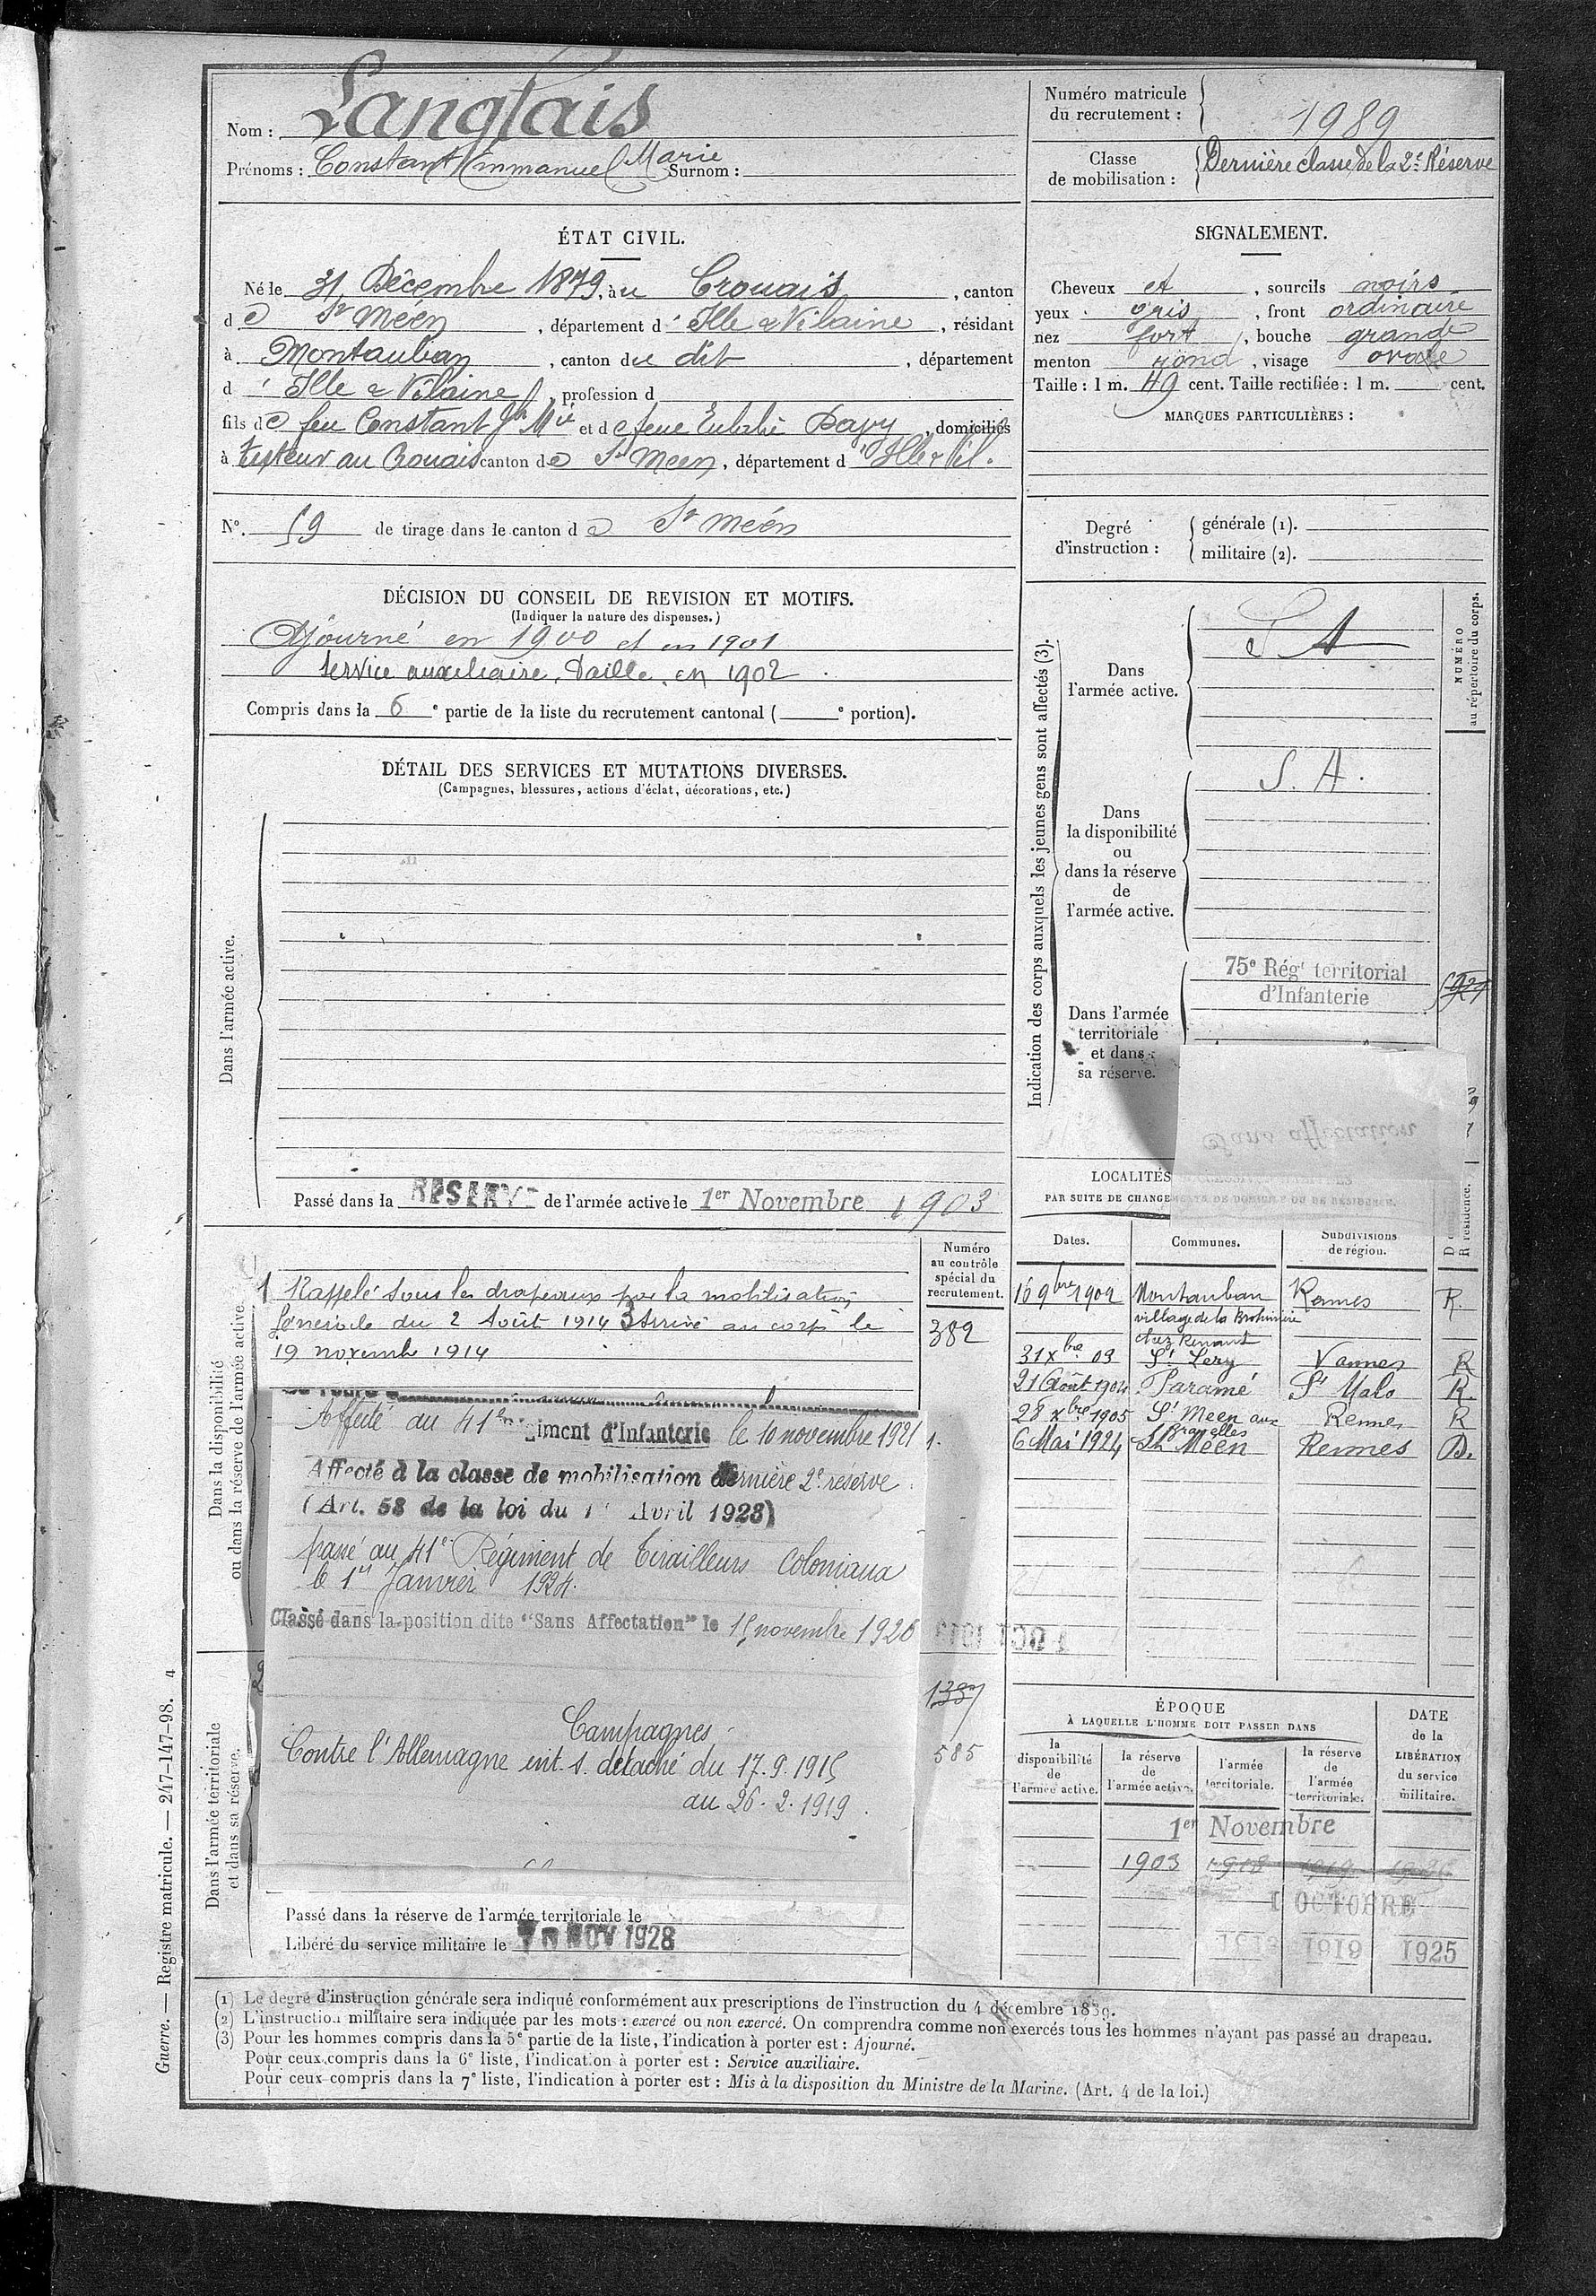 Nom : Langlais
Prénoms : Constant Emmanuel Marie Surnom :
Numéro matricule du recrutement : 1989
Classe de mobilisation : Dernière classe de la 2e Réserve
ÉTAT CIVIL.
Né le 31 Décembre 1879, à u Crouais, canton
d e St Méen, département d' Ille & Vilaine, résidant
à Montauban, canton du dit, département
d' Ille & Vilaine, profession d
fils de feu Constant Jn Mie et de feue Eulalie Davy, domiciliés
à au Crouais canton de St Meen, département d' Ille & Vil.
N° 59 de tirage dans le canton d e St Méen
SIGNALEMENT.
Cheveux et, sourcils noirs
yeux gris, front ordinaire
nez fort, bouche grande
menton rond, visage ovale
Taille : 1 m. 49 cent. Taille rectifiée : 1 m. cent.
MARQUES PARTICULIÈRES :
Degré d'instruction :
générale (1).
militaire (2).
DÉCISION DU CONSEIL DE REVISION ET MOTIFS.
(Indiquer la nature des dispenses.)
Ajourné en 1900 et en 1901
Service auxiliaire, Taille, en 1902.
Compris dans la 6e partie de la liste du recrutement cantonal ( e portion).
DÉTAIL DES SERVICES ET MUTATIONS DIVERSES.
(Campagnes, blessures, actions d'éclat, décorations, etc.)
Dans l'armée active.
Passé dans la RESERVE de l'armée active le 1er Novembre 1903
Indication des corps auxquels les jeunes gens sont affectés (3).
Dans l'armée active.
S A
NUMÉRO au répertoire du corps.
Dans la disponibilité ou dans la réserve de l'armée active.
S. A.
Dans l'armée territoriale et dans sa réserve.
75e Régt territorial
d'Infanterie
Sans affectation
LOCALITÉS
PAR SUITE DE CHANGEMENTS DE DOMICILE OU DE RÉSIDENCE.
Dates. Communes. Subdivisions de région.
16 9bre 1902 Montauban Rennes R.
village de la Brohinière
chez Renaut
31 Xbre 03 St Lery Vannes R
21 Août 1904 Paramé St Malo R.
28 Xbre 1905 St Meen aux Bruyelles Rennes R
6 Mai 1924 St Méen Rennes D.
Dans la disponibilité ou dans la réserve de l'armée active
Numéro au contrôle spécial du recrutement.
382
1 Rappelé sous les drapeaux par la mobilisation
Générale du 2 Août 1914 3 Arrivé au corps le
19 novembre 1914
Affecté au 41e régiment d'Infanterie le 10 novembre 1921 1.
Affecté à la classe de mobilisation dernière 2e réserve
(Art. 58 de la loi du 1er Avril 1923)
passé au 41e Régiment de Tirailleurs Coloniaux
le 1er Janvier 1924.
Classé dans la position dite "Sans Affectation" le 15 novembre 1926
Campagnes
Contre l'Allemagne int. s. detaché du 17.9.1915
au 26.2.1919.
585
Dans l'armée territoriale et dans sa réserve.
Passé dans la réserve de l'armée territoriale le
Libéré du service militaire le 10 NOV 1928
ÉPOQUE
À LAQUELLE L'HOMME DOIT PASSER DANS
la disponibilité de l'armée active.
la réserve de l'armée active.
l'armée territoriale.
la réserve de l'armée territoriale.
DATE de la LIBÉRATION du service militaire.
1er Novembre
1903
1 OCTOBRE
1913 1919 1925
(1) Le degré d'instruction générale sera indiqué conformément aux prescriptions de l'instruction du 4 décembre 1889.
(2) L'instruction militaire sera indiquée par les mots : exercé ou non exercé. On comprendra comme non exercés tous les hommes n'ayant pas passé au drapeau.
(3) Pour les hommes compris dans la 5e partie de la liste, l'indication à porter est : Ajourné.
Pour ceux compris dans la 6e liste, l'indication à porter est : Service auxiliaire.
Pour ceux compris dans la 7e liste, l'indication à porter est : Mis à la disposition du Ministre de la Marine. (Art. 4 de la loi.)
Guerre. — Registre matricule. — 247-147-98. 4